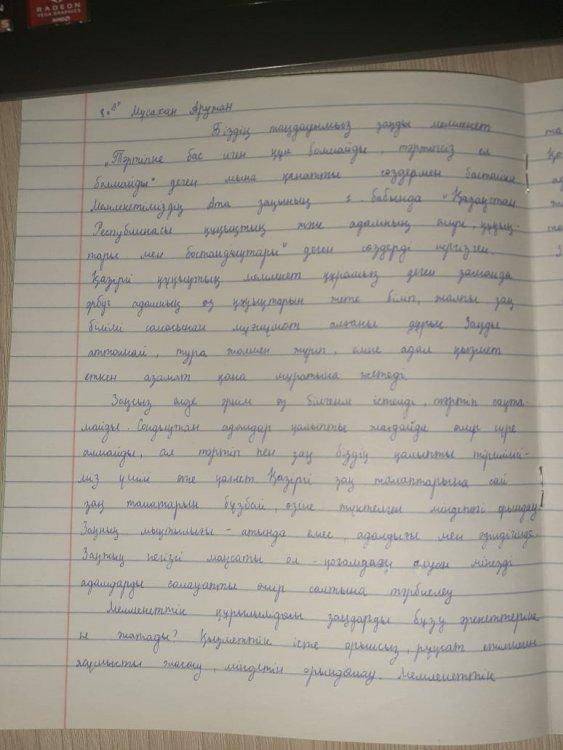 RADEON
VEGA GRAPHICS
AMD
Мусахан Аружан
Біздің таңдауымыз заңды мемлекет
„Тәртіпке бас иген құл болмайды, тәртіпсіз ел
болмайды" деген мына қанатты сөздермен бастайын.
Мемлекетіміздің Ата заңының 1 бабында „Қазақстан
Республикасы құқықтық және адамның өмірі, құқық-
тары мен бостандықтары" деген сөздерді енгізген.
Қазіргі құқықтық мемлекет құрамыз деген заманда
әрбір адамның өз құқықтарын жете біліп, жалпы заң
білімі саласынан мағлұмат алғаны дұрыс. Заңды
аттамай, тура жолмен жүріп, еліне адал қызмет
еткен азамат қана мұратына жетеді.
Заңсыз елде әркім өз білгенін істейді, тәртіп сақта-
майды. Сондықтан адамдар қалыпты жағдайда өмір сүре
алмайды, ал тәртіп пен заң біздің қалыпты тірлігі-
міз үшін өте қажет. Қазіргі заң талаптарына сай
заң талаптарын бұзбай, өзіне жүктелген міндетті орындау
Заңның мықтылығы - атында емес, адалдығы мен әділдігінде.
Заңның негізгі мақсаты ол - қоғамдағы мінезді
адамдарды салауатты өмір салтына тәрбиелеу
Мемлекеттік құрылымдағы заңдарды бұзу әрекеттеріне
не жатады? Қызметтік істе орынсыз, рұқсат етілмеген
жұмысты жасау, міндетін орындамау. Мемлекеттік